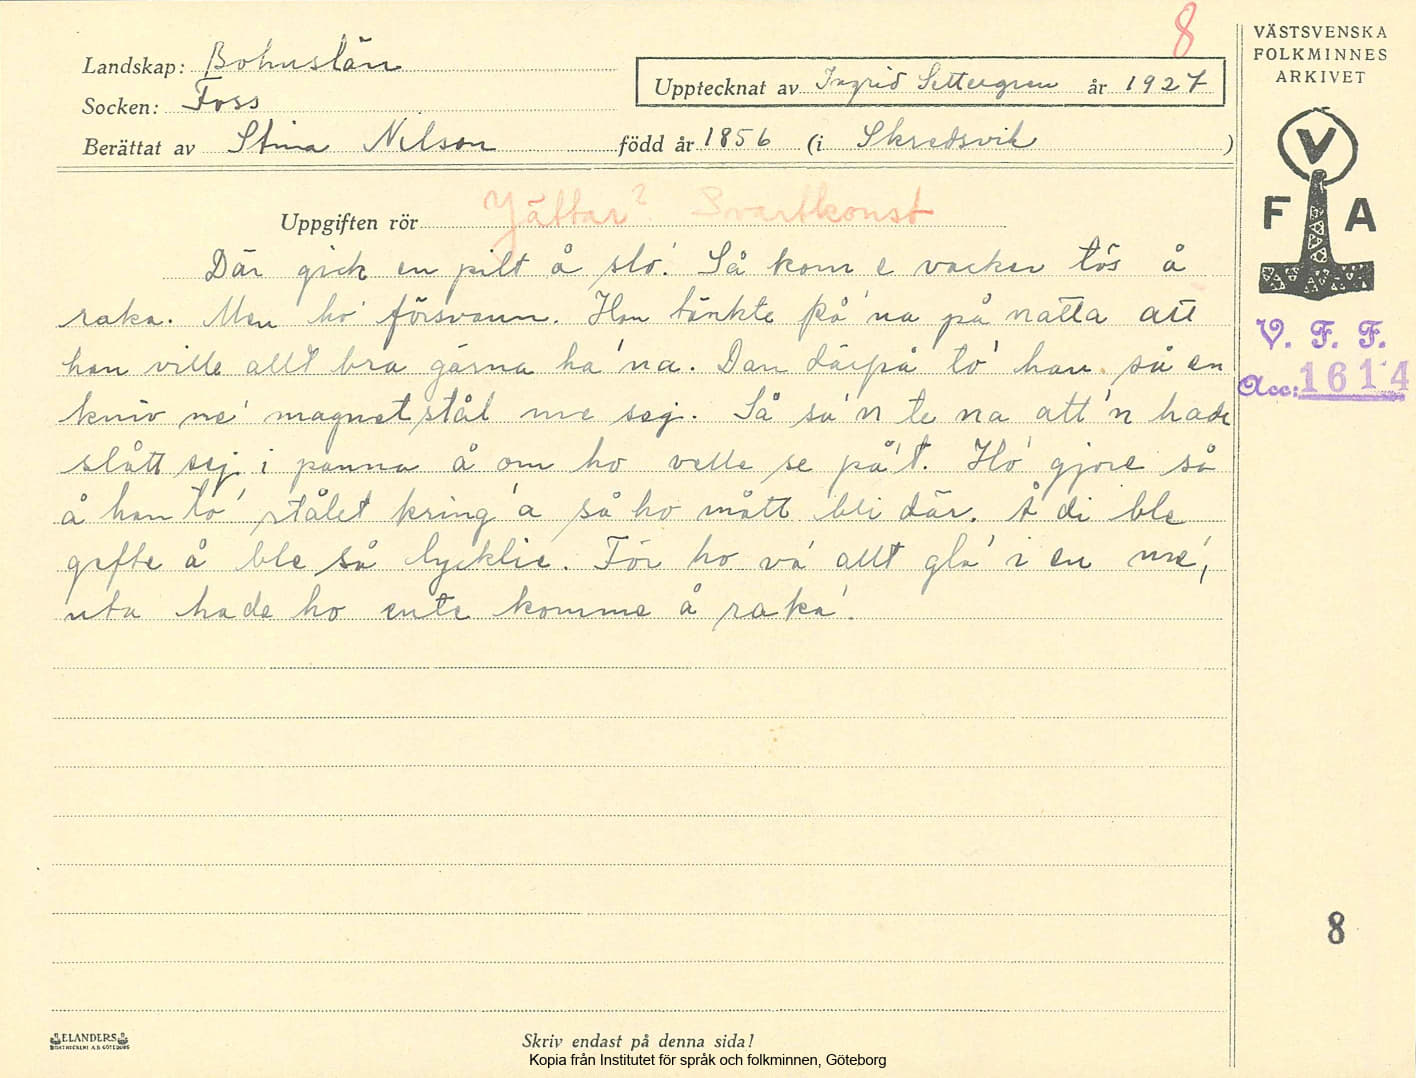 8
VÄSTSVENSKA
FOLKMINNES
ARKIVET
Landskap: Bohuslän
Upptecknat av Ingrid Settergren år 1927
Socken: Foss
Berättat av Stina Nilson född år 1856 (i Skredsvik )
V
F A
Uppgiften rör Jättar? Svartkonst
Där gick en pilt å slo'. Så kom e vacker tös å
raka. Men ho' försvann. Han tänkte på 'na på natta att
han ville allt bra gärna ha 'na. Dan därpå to' han så en
kniv me' magnetstål me sej. Så sa 'n te na att 'n hade
slått sej i panna å om ho velle se på't. Ho' gjore så
å han to' stålet kring 'a så ho mått bli där. Å di ble
gefte å ble så lycklie. För ho va' allt gla' i en me',
uta hade ho ente komme å raka'.
V. F. F.
Acc: 1614
8
ELANDERS
Skriv endast på denna sida!
Kopia från Institutet för språk och folkminnen, Göteborg